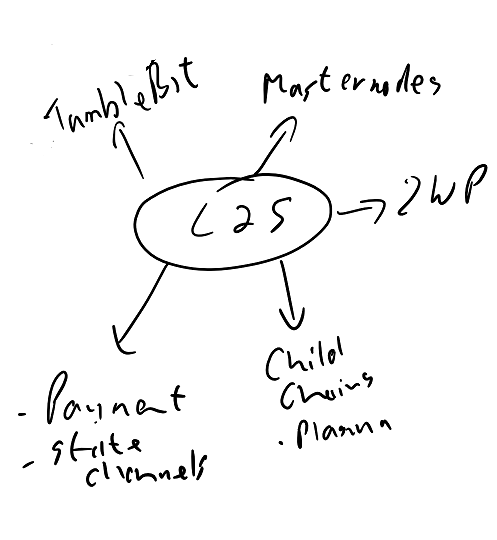 TumbleBit
Masternodes
L2S
2WP
- Payment
- state
channels
Child
Chains
. Plasma